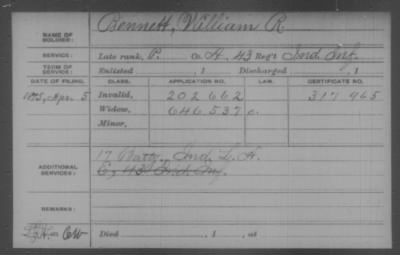 NAME OF SOLDIER: Bennett, William R
SERVICE: Late rank, P. Co. A, 43 Reg't Ind. Inf.
TERM OF SERVICE: Enlisted , 1 Discharged , 1
DATE OF FILING. CLASS. APPLICATION NO. LAW. CERTIFICATE NO.
1875, Apr. 5 Invalid, 202 662 317 965
Widow, 646 537 c.
Minor,
ADDITIONAL SERVICES: 17 Batty. Ind. L. A.
43 Ind. Inf.
REMARKS:
Died , 1 , at